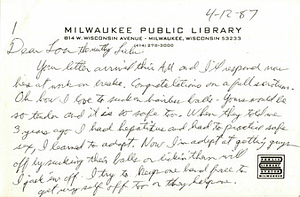 1
4-12-87
MILWAUKEE PUBLIC LIBRARY
814 W. WISCONSIN AVENUE - MILWAUKEE, WISCONSIN 53233
(414) 278-3000
Dear Lou
Your letter arrived this AM and I'll respond now
here at work on break. Congratulations on a full
Oh how I love to suck on hairless balls - Yours would be
so tender and it is so safe too. When they told me
3 years ago I had hepatitus and had to practice safe
sex, I learned to adapt. Now I'm adept at getting guys
off by sucking their balls or them will
I jack 'em off. I try to keep one hand free to
get myself off too or they help me.